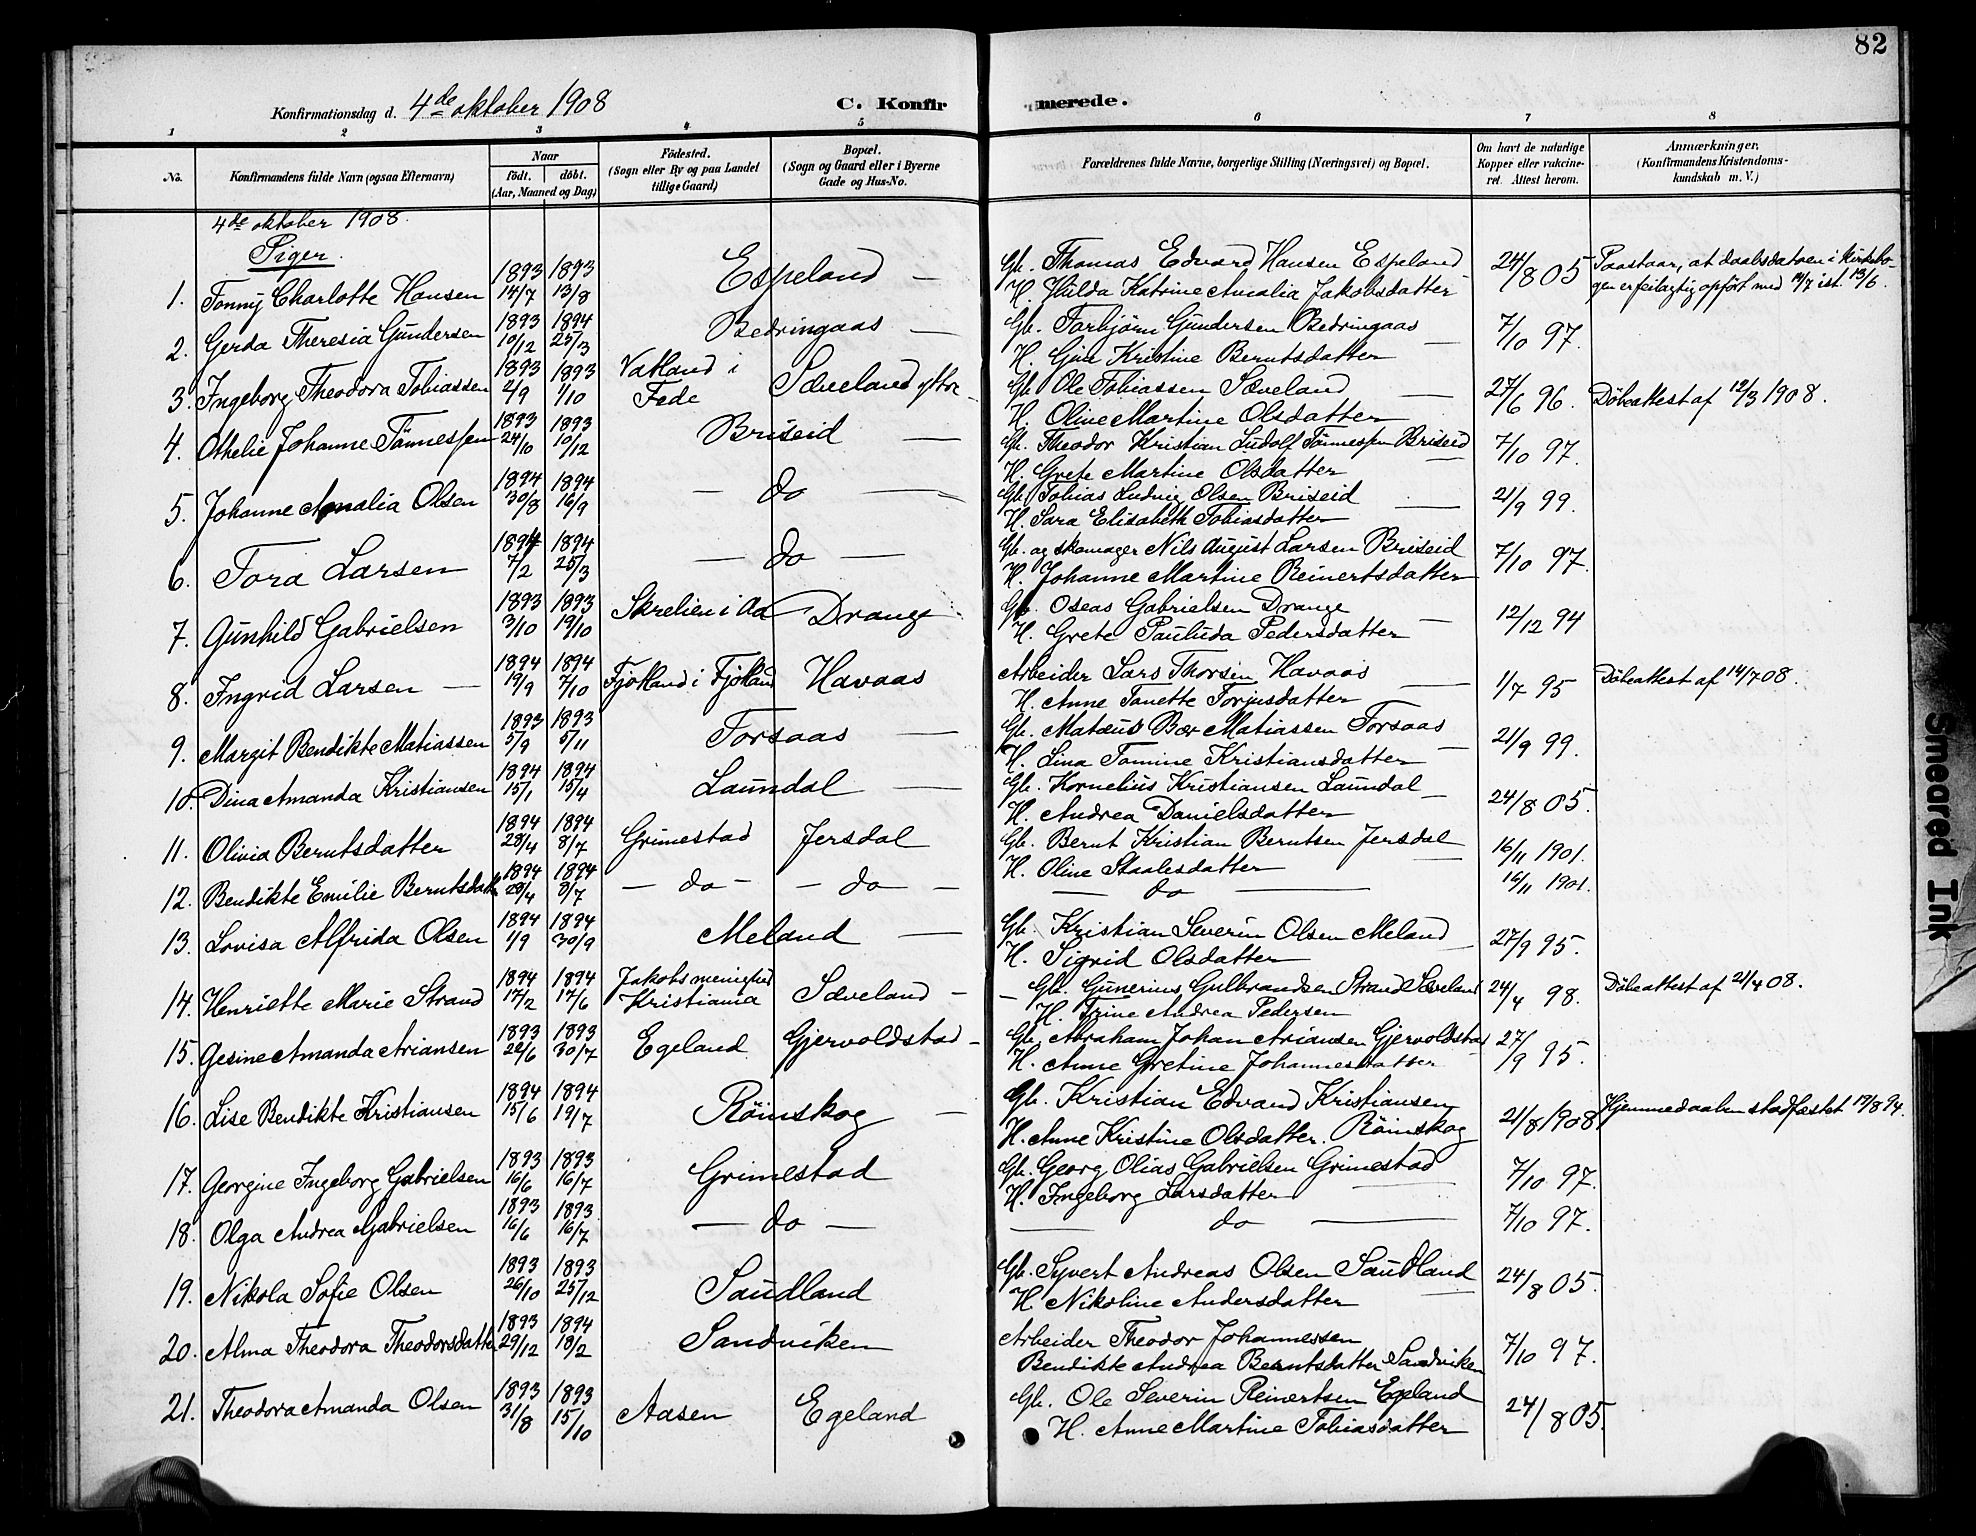 82
Konfirmationsdag d. 4de oktober 1908
C. Konfirmerede.
1 2 3 4 5 6 7 8
No.
Konfirmandens fulde Navn (ogsaa Efternavn)
Naar
Födt. döbt.
(Aar, Maaned og Dag)
Födested.
(Sogn eller By og paa Landet
tillige Gaard)
Bopæl.
(Sogn og Gaard eller i Byerne
Gade og Hus-No.
Forældrenes fulde Navne, borgerlige Stilling (Næringsvei) og Bopæl.
Om havt de naturlige
Kopper eller vakcine-
ret. Attest herom.
Anmærkninger.
(Konfirmandens Kristendoms-
kundskab m. V.)
4de oktober 1908.
Piger.
1. Tonny Charlotte Hansen 1893 14/7 1893 13/8 Espeland — Gb. Thomas Edvard Hansen Espeland
H. Hulda Katrine Amalia Jakobsdatter 24/8 05 Paastaar, at daabsdatoen i kirkebo-
gen er feilagtig opfört med 14/7 ist. 13/6.
2. Gerda Theresia Gundersen 1893 10/12 1894 25/3 Bedringaas — Gb. Torbjörn Gundersen Bedringaas
H. Gina Kristine Berntsdatter — 7/10 97.
3. Ingeborg Theodora Tobiassen 1893 2/9 1893 1/10 Vatland i
Fede Sæveland ytre Gb. Ole Tobiassen Sæveland —
H. Oline Martine Olsdatter 27/6 96. Döbeattest af 12/3 1908.
4. Othelie Johanne Tönnessen 1893 24/10 1893 10/12 Briseid — Gb. Theodor Kristian Ludolf Tönnessen Briseid
H. Grete Martine Olsdatter — 7/10 97.
5. Johanne Amalia Olsen 1894 30/8 1894 16/9 — do — Gb. Tobias Ludvig Olsen Briseid
H. Sara Elisabeth Tobiasdatter — 21/9 99.
6. Tora Larsen 1894 7/2 1894 25/3 — do — Gb. og skomager Nils August Larsen Briseid
H. Johanne Martine Reinertsdatter 7/10 97.
7. Gunhild Gabrielsen 1893 3/10 1893 19/10 Skrelien i Aa Drange Gb. Oseas Gabrielsen Drange
H. Grete Pauluda Pedersdatter — 12/12 94
8. Ingrid Larsen — 1894 19/9 1894 7/10 Fjotland i Fjotland Havaas Arbeider Lars Thorsen Havaas
H. Anne Tonette Torjusdatter — 1/7 95 Döbeattest af 14/7 08.
9. Margit Bendikte Matiassen 1893 5/9 1893 5/11 Forsaas — Gb. Matæus Bær Matiassen Forsaas
H. Lina Tomine Kristiansdatter — 21/9 99.
10. Dina Amanda Kristiansen 1894 15/1 1894 15/4 Laundal — Gb. Kornelius Kristiansen Laundal —
H. Andrea Danielsdatter 24/8 05.
11. Olivia Berntsdatter 1894 28/4 1894 8/7 Grimestad Jersdal Gb. Bernt Kristian Berntsen Jersdal
H. Oline Staalesdatter — 16/11 1901.
12. Bendikte Emilie Berntsdatter 1894 28/4 1894 8/7 — do — — do — — do — 16/11 1901.
13. Lovisa Alfrida Olsen 1894 1/9 1894 30/9 Meland — Gb. Kristian Severin Olsen Meland
H. Sigrid Olsdatter — 27/9 95.
14. Henriette Marie Strand 1894 17/2 1894 17/6 Jakobs menighed
Kristiania Sæveland — — Gb. Gunerius Gulbrandsen Strand Sæveland
H. Trine Andrea Pedersen 24/4 98. Döbeattest af 21/4 08.
15. Gesine Amanda Ariansen 1893 22/6 1893 30/7 Egeland Gjervoldstad — Gb. Abraham Johan Ariansen Gjervoldstad
H. Anne Gretine Johannesdatter 27/9 95.
16. Lise Bendikte Kristiansen 1894 15/6 1894 19/7 Röinskog — Gb. Kristian Edvard Kristiansen
H. Anne Kristine Olsdatter. Röinskog 21/8 1908 Hjemmedaaben stadfæstet 19/8 94.
17. Georgine Ingeborg Gabrielsen 1893 16/6 1893 16/7 Grimestad Gb. Georg Olias Gabrielsen Grimestad
H. Ingeborg Larsdatter — 7/10 97.
18. Olga Andrea Gabrielsen 1893 16/6 1893 16/7 — do — — do — 7/10 97.
19. Nikola Sofie Olsen 1893 26/10 1893 25/12 Saudland Gb. Syvert Andreas Olsen Saudland
H. Nikoline Andersdatter — 24/8 05.
20. Alma Theodora Theodorsdatter 1893 29/12 1894 18/2 Sandviken Arbeider Theodor Johannessen
Bendikte Andrea Berntsdatter Sandviken 7/10 97.
21. Theodora Amanda Olsen 1893 31/8 1893 15/10 Aasen Egeland Gb. Ole Severin Reinertsen Egeland
H. Anne Martine Tobiasdatter 24/8 05.
Smeared Ink